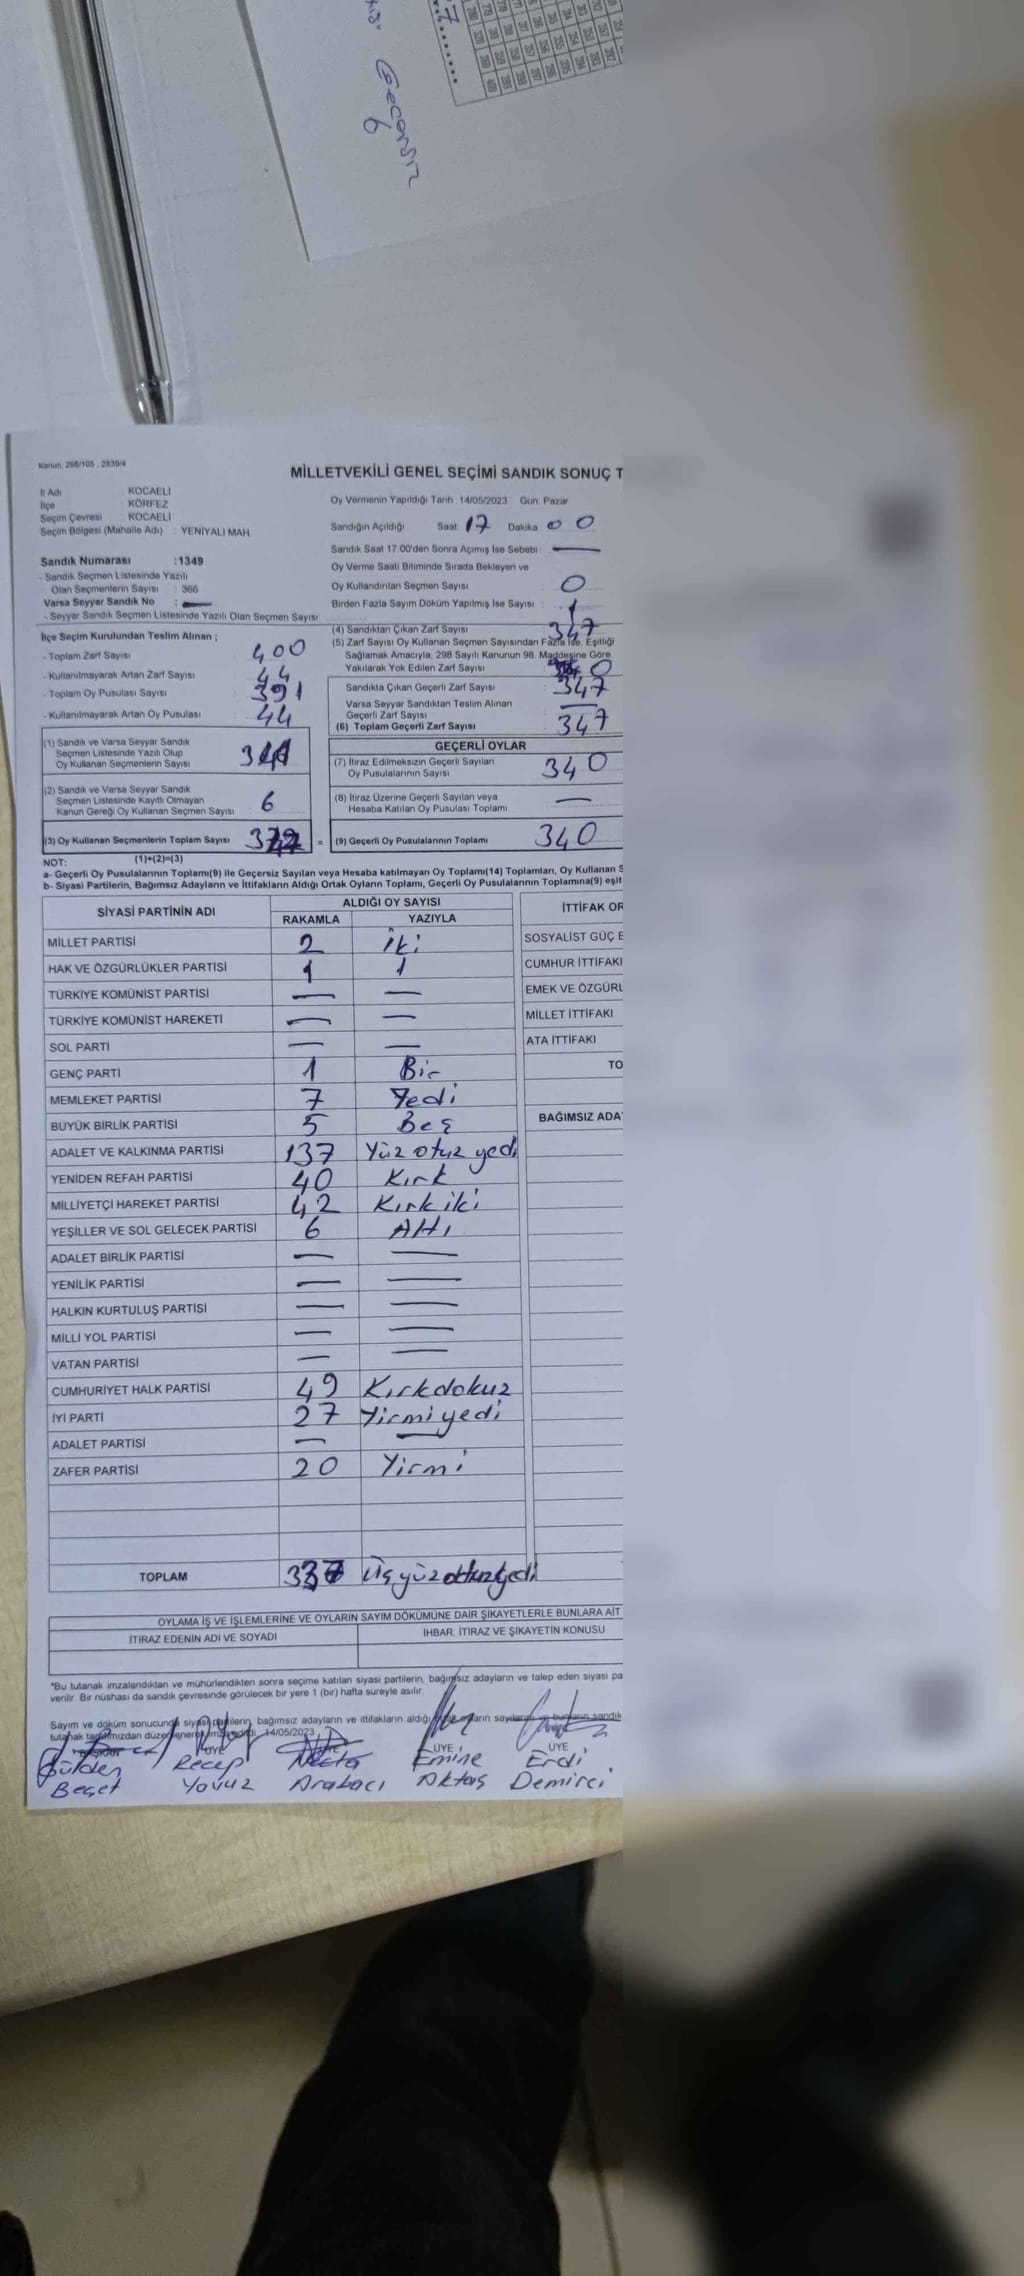 Geçersiz
7
Kanun, 298/105 , 2839/4
MİLLETVEKİLİ GENEL SEÇİMİ SANDIK SONUÇ T
İl Adı : KOCAELİ
İlçe : KÖRFEZ
Seçim Çevresi : KOCAELİ
Seçim Bölgesi (Mahalle Adı) : YENİYALI MAH.
Oy Vermenin Yapıldığı Tarih :14/05/2023 Gün: Pazar
Sandığın Açıldığı Saat: 17 Dakika 0 0
Sandık Saat 17:00'den Sonra Açımış İse Sebebi : —
Sandık Numarası :1349
- Sandık Seçmen Listesinde Yazılı
Olan Seçmenlerin Sayısı : 366
Varsa Seyyar Sandık No : —
- Seyyar Sandık Seçmen Listesinde Yazılı Olan Seçmen Sayısı
Oy Verme Saati Bitiminde Sırada Bekleyen ve
Oy Kullandırılan Seçmen Sayısı 0
Birden Fazla Sayım Döküm Yapılmış İse Sayısı 1
İlçe Seçim Kurulundan Teslim Alınan ;
- Toplam Zarf Sayısı 400
- Kullanılmayarak Artan Zarf Sayısı 44
- Toplam Oy Pusulası Sayısı 391
- Kullanılmayarak Artan Oy Pusulası 44
(4) Sandıktan Çıkan Zarf Sayısı 347
(5) Zarf Sayısı Oy Kullanan Seçmen Sayısından Fazla İse, Eşitliği
Sağlamak Amacıyla, 298 Sayılı Kanunun 98. Maddesine Göre
Yakılarak Yok Edilen Zarf Sayısı 0
Sandıkta Çıkan Geçerli Zarf Sayısı : 347
Varsa Seyyar Sandıktan Teslim Alınan
Geçerli Zarf Sayısı : —
(6) Toplam Geçerli Zarf Sayısı : 347
(1) Sandık ve Varsa Seyyar Sandık
Seçmen Listesinde Yazılı Olup
Oy Kullanan Seçmenlerin Sayısı
(2) Sandık ve Varsa Seyyar Sandık
Seçmen Listesinde Kayıtlı Olmayan
Kanun Gereği Oy Kullanan Seçmen Sayısı 6
(3) Oy Kullanan Seçmenlerin Toplam Sayısı =
GEÇERLİ OYLAR
(7) İtiraz Edilmeksizin Geçerli Sayılan
Oy Pusulalarının Sayısı 340
(8) İtiraz Üzerine Geçerli Sayılan veya
Hesaba Katılan Oy Pusulası Toplamı —
(9) Geçerli Oy Pusulalarının Toplamı 340
NOT: (1)+(2)=(3)
a- Geçerli Oy Pusulalarının Toplamı(9) ile Geçersiz Sayılan veya Hesaba katılmayan Oy Toplamı(14) Toplamları, Oy Kullanan S
b- Siyasi Partilerin, Bağımsız Adayların ve İttifakların Aldığı Ortak Oyların Toplamı, Geçerli Oy Pusulalarının Toplamına(9) eşit
SİYASİ PARTİNİN ADI ALDIĞI OY SAYISI
RAKAMLA YAZIYLA
MİLLET PARTİSİ 2 iki
HAK VE ÖZGÜRLÜKLER PARTİSİ 1 1
TÜRKİYE KOMÜNİST PARTİSİ — —
TÜRKİYE KOMÜNİST HAREKETİ — —
SOL PARTİ — —
GENÇ PARTİ 1 Bir
MEMLEKET PARTİSİ 7 Yedi
BÜYÜK BİRLİK PARTİSİ 5 Beş
ADALET VE KALKINMA PARTİSİ 137 Yüz otuz yedi
YENİDEN REFAH PARTİSİ 40 Kırk
MİLLİYETÇİ HAREKET PARTİSİ 42 Kırk iki
YEŞİLLER VE SOL GELECEK PARTİSİ 6 Altı
ADALET BİRLİK PARTİSİ — —
YENİLİK PARTİSİ — —
HALKIN KURTULUŞ PARTİSİ — —
MİLLİ YOL PARTİSİ — —
VATAN PARTİSİ — —
CUMHURİYET HALK PARTİSİ 49 Kırkdokuz
İYİ PARTİ 27 Yirmiyedi
ADALET PARTİSİ — —
ZAFER PARTİSİ 20 Yirmi
TOPLAM 337 Üçyüzotuzyedi
İTTİFAK OR
SOSYALİST GÜÇ B
CUMHUR İTTİFAKI
EMEK VE ÖZGÜRL
MİLLET İTTİFAKI
ATA İTTİFAKI
TO
BAĞIMSIZ ADA
OYLAMA İŞ VE İŞLEMLERİNE VE OYLARIN SAYIM DÖKÜMÜNE DAİR ŞİKAYETLERLE BUNLARA AİT
İTİRAZ EDENİN ADI VE SOYADI İHBAR, İTİRAZ VE ŞİKAYETİN KONUSU
*Bu tutanak imzalandıktan ve mühürlendikten sonra seçime katılan siyasi partilerin, bağımsız adayların ve talep eden siyasi pa
verilir. Bir nüshası da sandık çevresinde görülecek bir yere 1 (bir) hafta süreyle asılır.
Sayım ve döküm sonucunda siyasi partilerin, bağımsız adayların ve ittifakların aldığı ortak oyların sayılarını ve bunların sandık
tutanak tarafımızdan düzenlenerek imza edildi. 14/05/2023
BAŞKAN ÜYE ÜYE ÜYE
Gülden Recep Emine Erdi
Beçet Yavuz Arabacı Aktaş Demirci